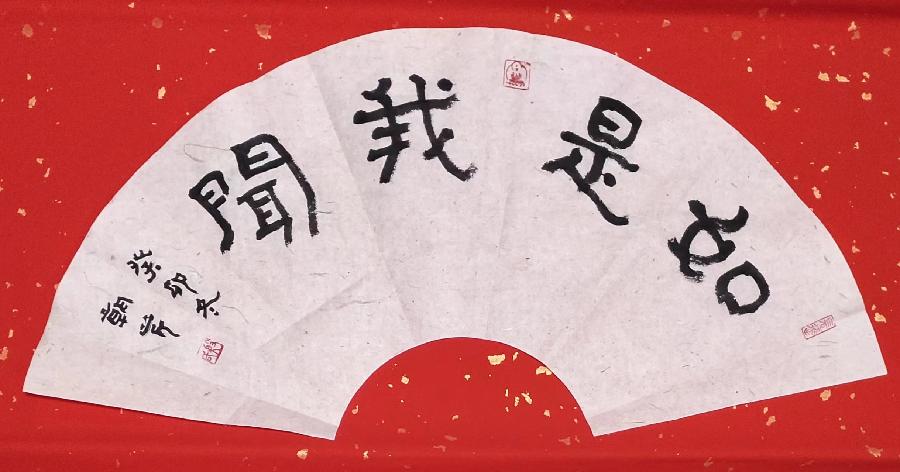 如是我聞
癸卯冬